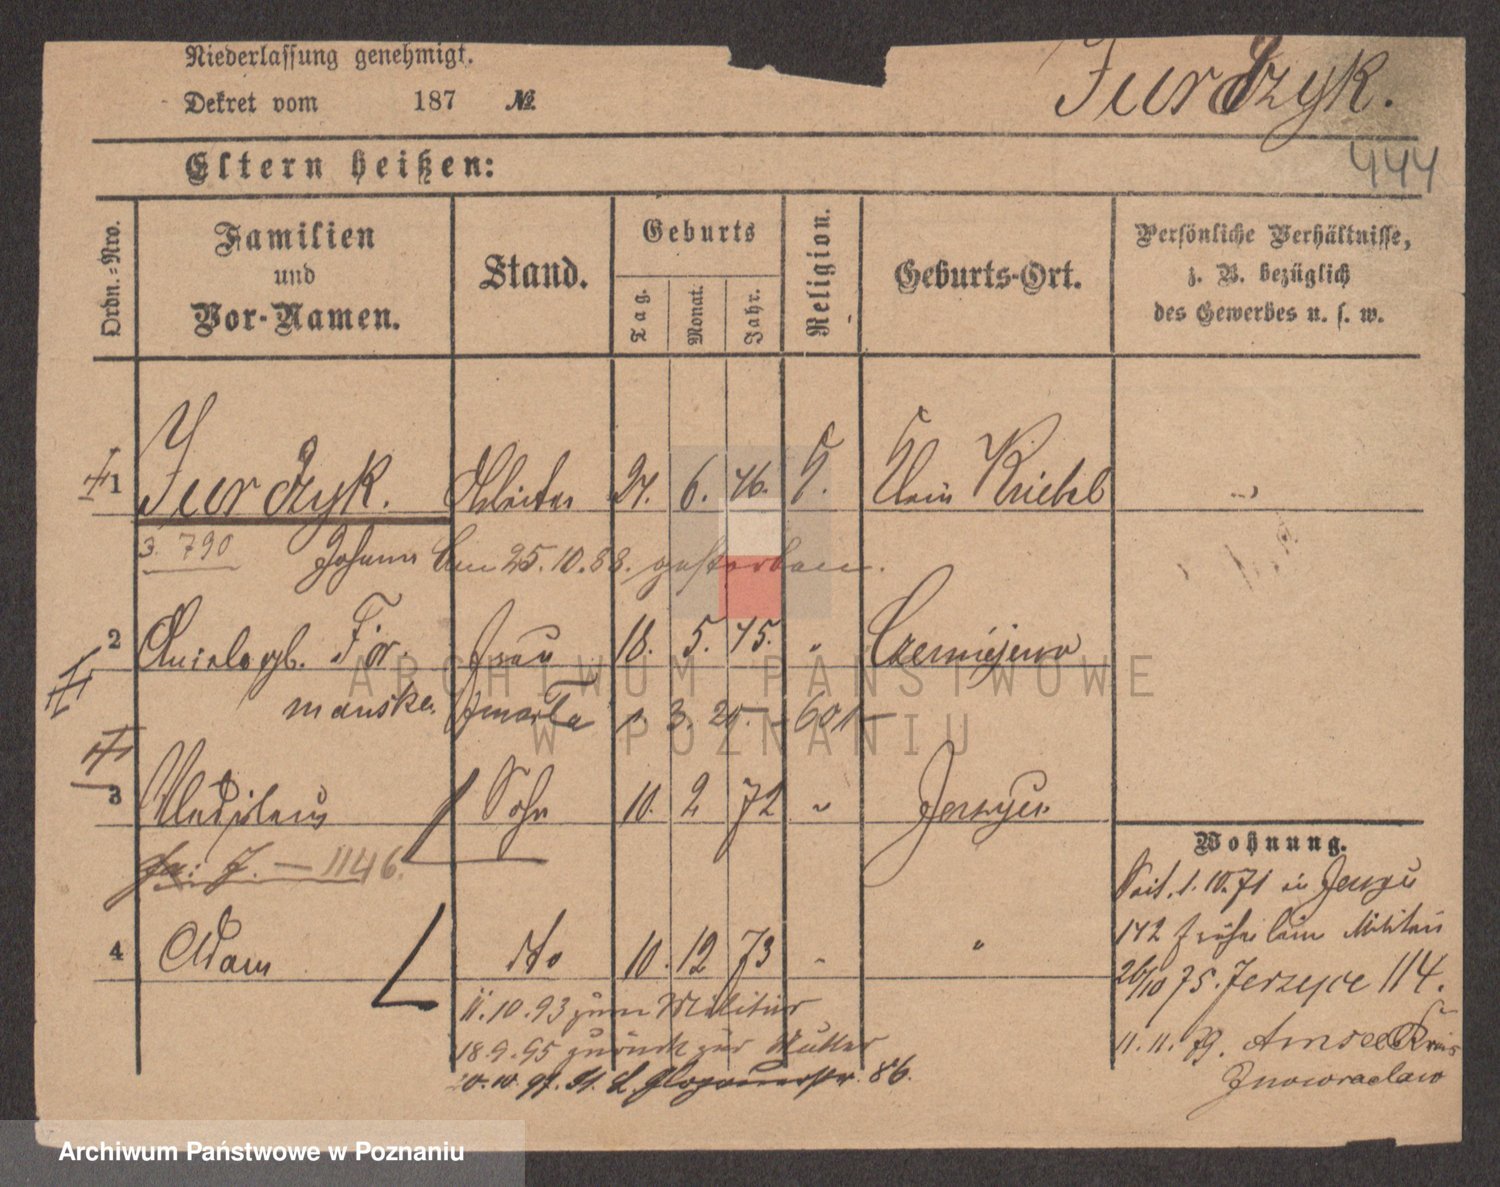 Niederlassung genehmigt.
Dekret vom 187 №
Jurdzyk.
444
Eltern heißen:
Ordn.-Nro.
Familien und Vor-Namen.
Stand.
Geburts
Tag.
Monat.
Jahr.
Religion.
Geburts-Ort.
Persönliche Verhältnisse,
z. B. bezüglich
des Gewerbes u. s. w.
1 Jurdzyk. Arbeiter 24. 6. 46. K. Klein Kriebel
3. 790 Johann am 25.10.88. gestorben.
2 Aniela gb. För- Frau 18. 5. 45. " Czerniejewo
manska.
3 Ladislaus Sohn 10. 2 72 " Jerzyce
J. — 1146.
4 Adam dto 10. 12 73 " "
11.10.93 zum Militär
18.9.95 zurück zur Mutter
20.10.97. Glogauerstr. 86.
Wohnung.
Seit 1.10.71 in Jerzyce
142 früher beim Militair
26/10 75. Jerzyce 114.
11.11.79. Amsee Kreis
Inowraclaw
ARCHIWUM PAŃSTWOWE
W POZNANIU
Archiwum Państwowe w Poznaniu